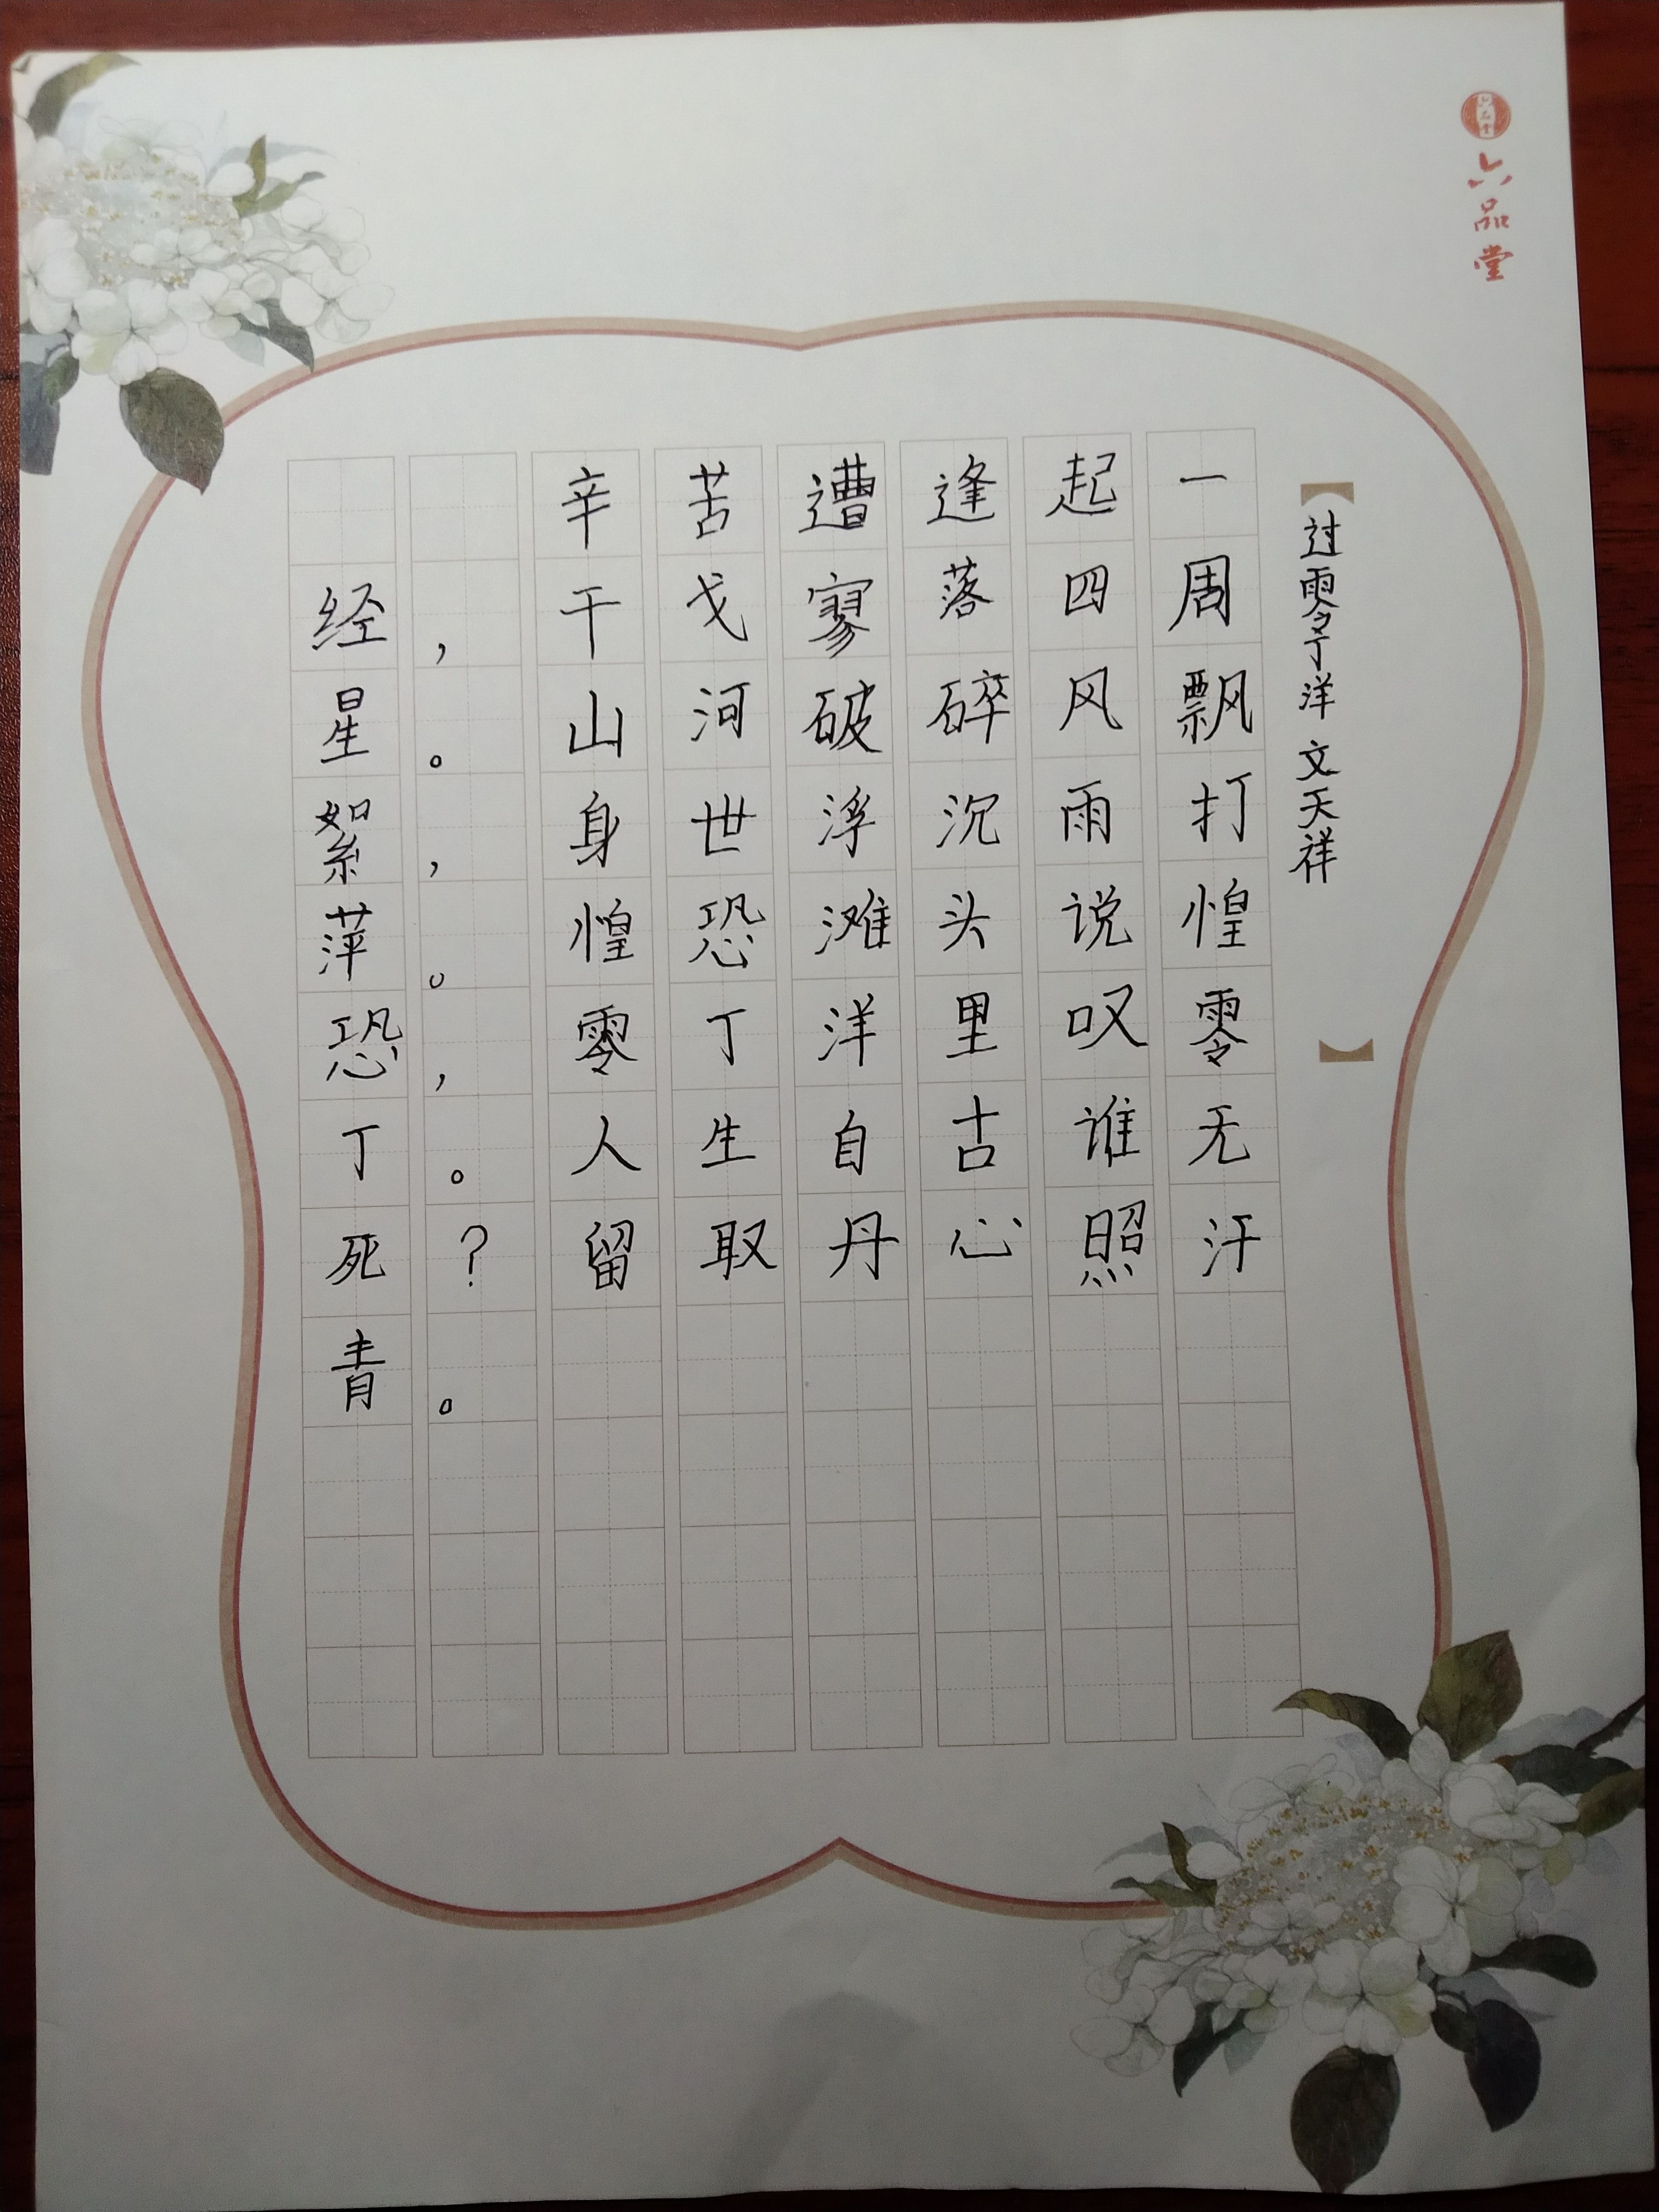 六品堂
过零丁洋 文天祥
辛苦遭逢起一
经，干戈寥落四周
星。山河破碎风飘
絮，身世浮沉雨打
萍。惶恐滩头说惶
恐，零丁洋里叹零
丁。人生自古谁无
死？留取丹心照汗
青。